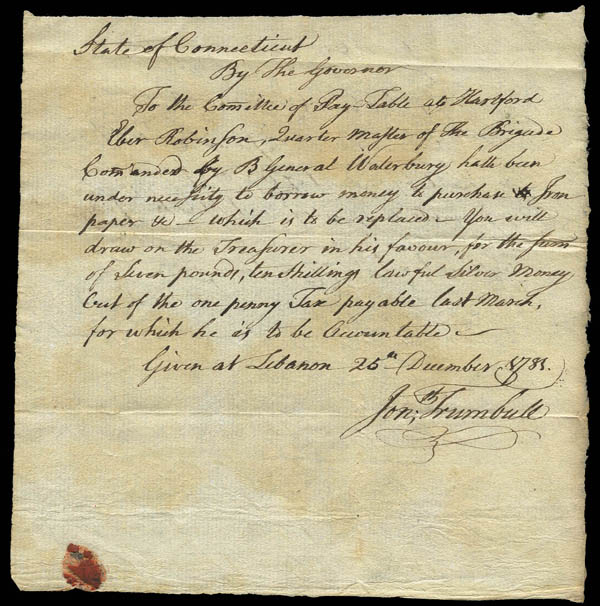 State of Connecticut
By The Governor
To the Comittee of Pay-Table at Hartford
Eber Robinson, Quarter Master of The Brigade
Comanded by B General Waterbury hath been
under necessity to borrow money to purchase Iron
paper &c - which is to be replaced - You will
draw on the Treasurer in his favour, for the sum
of Seven pounds, ten shillings lawful Silver Money
Out of the one penny Tax payable last March,
for which he is to be Accountable -
Given at Lebanon 25th December 1781.
Jonth; Trumbull